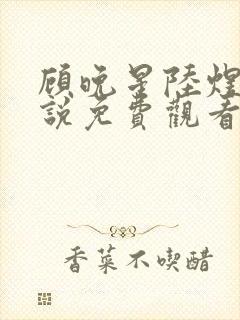 顧晚星陸煌
說免費觀看
香菜不喫醋